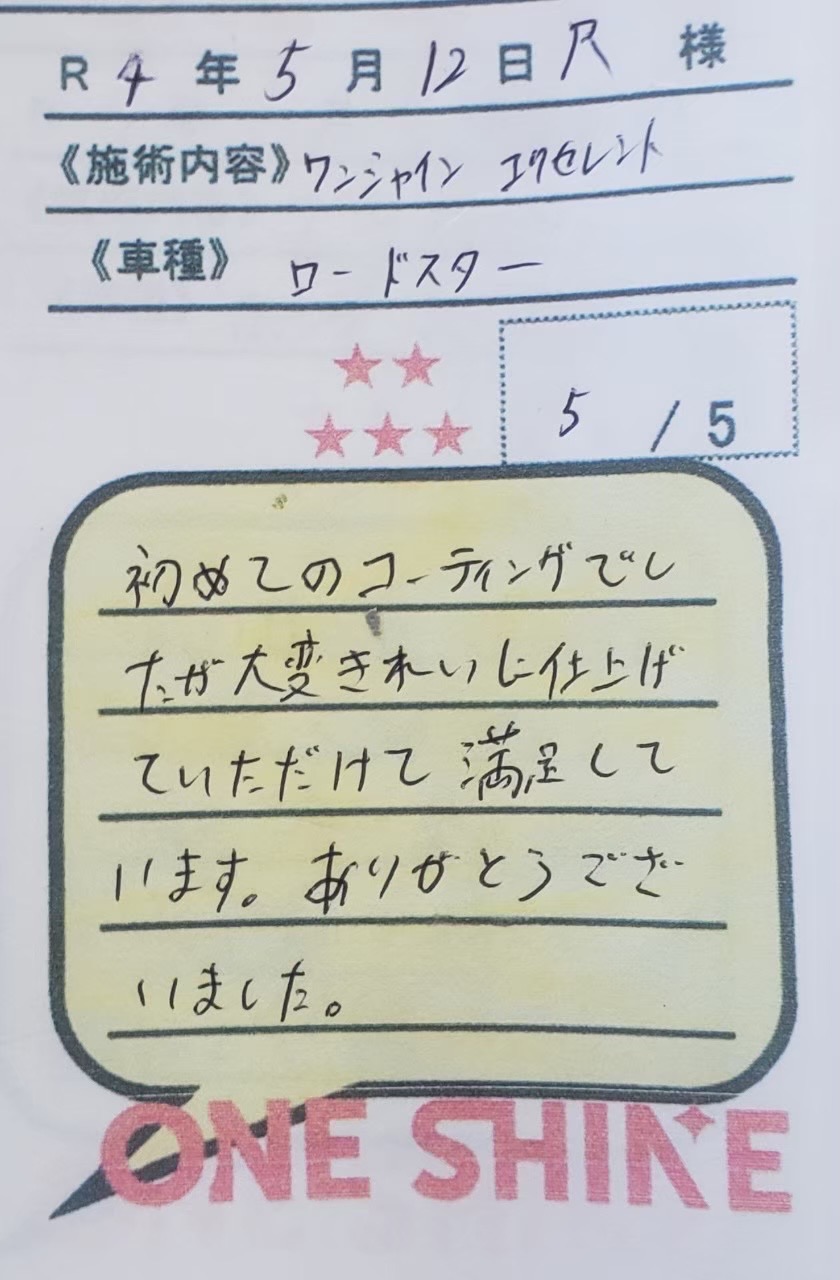 R 4 年 5 月 12 日 R 様
《施術内容》ワンシャイン エクセレント
《車種》 ロードスター
5 / 5
初めてのコーティングでし
たが大変きれいに仕上げ
ていただけて満足して
います。ありがとうござ
いました。
ONE SHINE